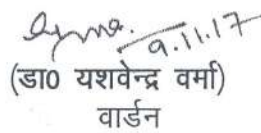 9.11.17
(डा0 यशवेन्द्र वर्मा)
वार्डन